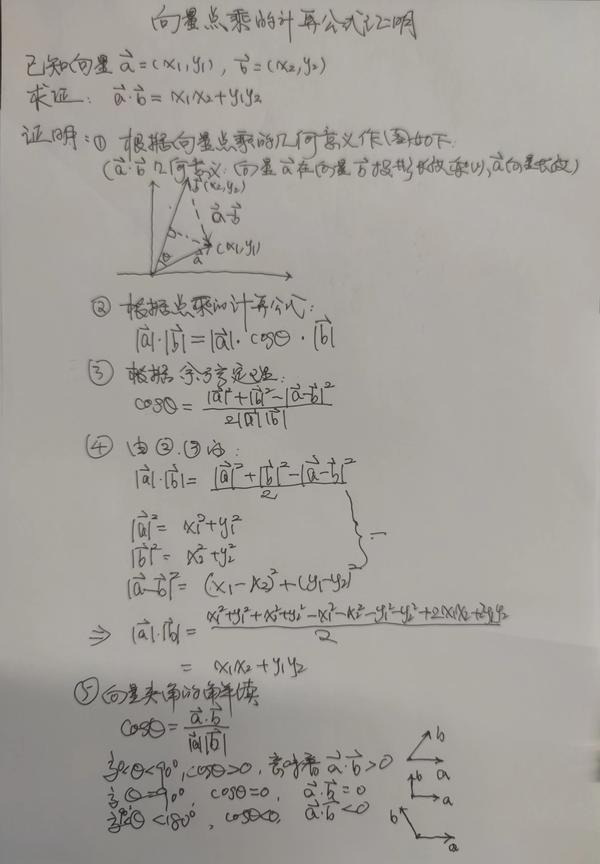 向量点乘的计算公式证明
已知向量 a⃗=(x₁,y₁), b⃗=(x₂,y₂)
求证: a⃗·b⃗=x₁x₂+y₁y₂
证明:① 根据向量点乘的几何意义作图如下
(a⃗·b⃗几何意义:向量a⃗在向量b⃗投影长度乘以,a⃗向量长度)
b⃗(x₂,y₂)
a⃗-b⃗
(x₁,y₁)
θ a⃗
② 根据点乘的计算公式:
|a⃗|·|b⃗|=|a⃗|·cosθ·|b⃗|
③ 根据余弦定理:
cosθ=(|a⃗|²+|b⃗|²-|a⃗-b⃗|²)/(2|a⃗||b⃗|)
④ 由②.③得:
|a⃗|·|b⃗|=(|a⃗|²+|b⃗|²-|a⃗-b⃗|²)/2
|a⃗|²=x₁²+y₁²
|b⃗|²=x₂²+y₂²
|a⃗-b⃗|²=(x₁-x₂)²+(y₁-y₂)²
⇒ |a⃗|·|b⃗|=(x₁²+y₁²+x₂²+y₂²-x₁²-x₂²-y₁²-y₂²+2x₁x₂+2y₁y₂)/2
=x₁x₂+y₁y₂
⑤ 向量夹角的解读
cosθ=(a⃗·b⃗)/(|a⃗||b⃗|)
θ<90°,cosθ>0, 意味着 a⃗·b⃗>0
b a
当θ=90°, cosθ=0, a⃗·b⃗=0
b a
θ<180°, cosθ<0, a⃗·b⃗<0
b a